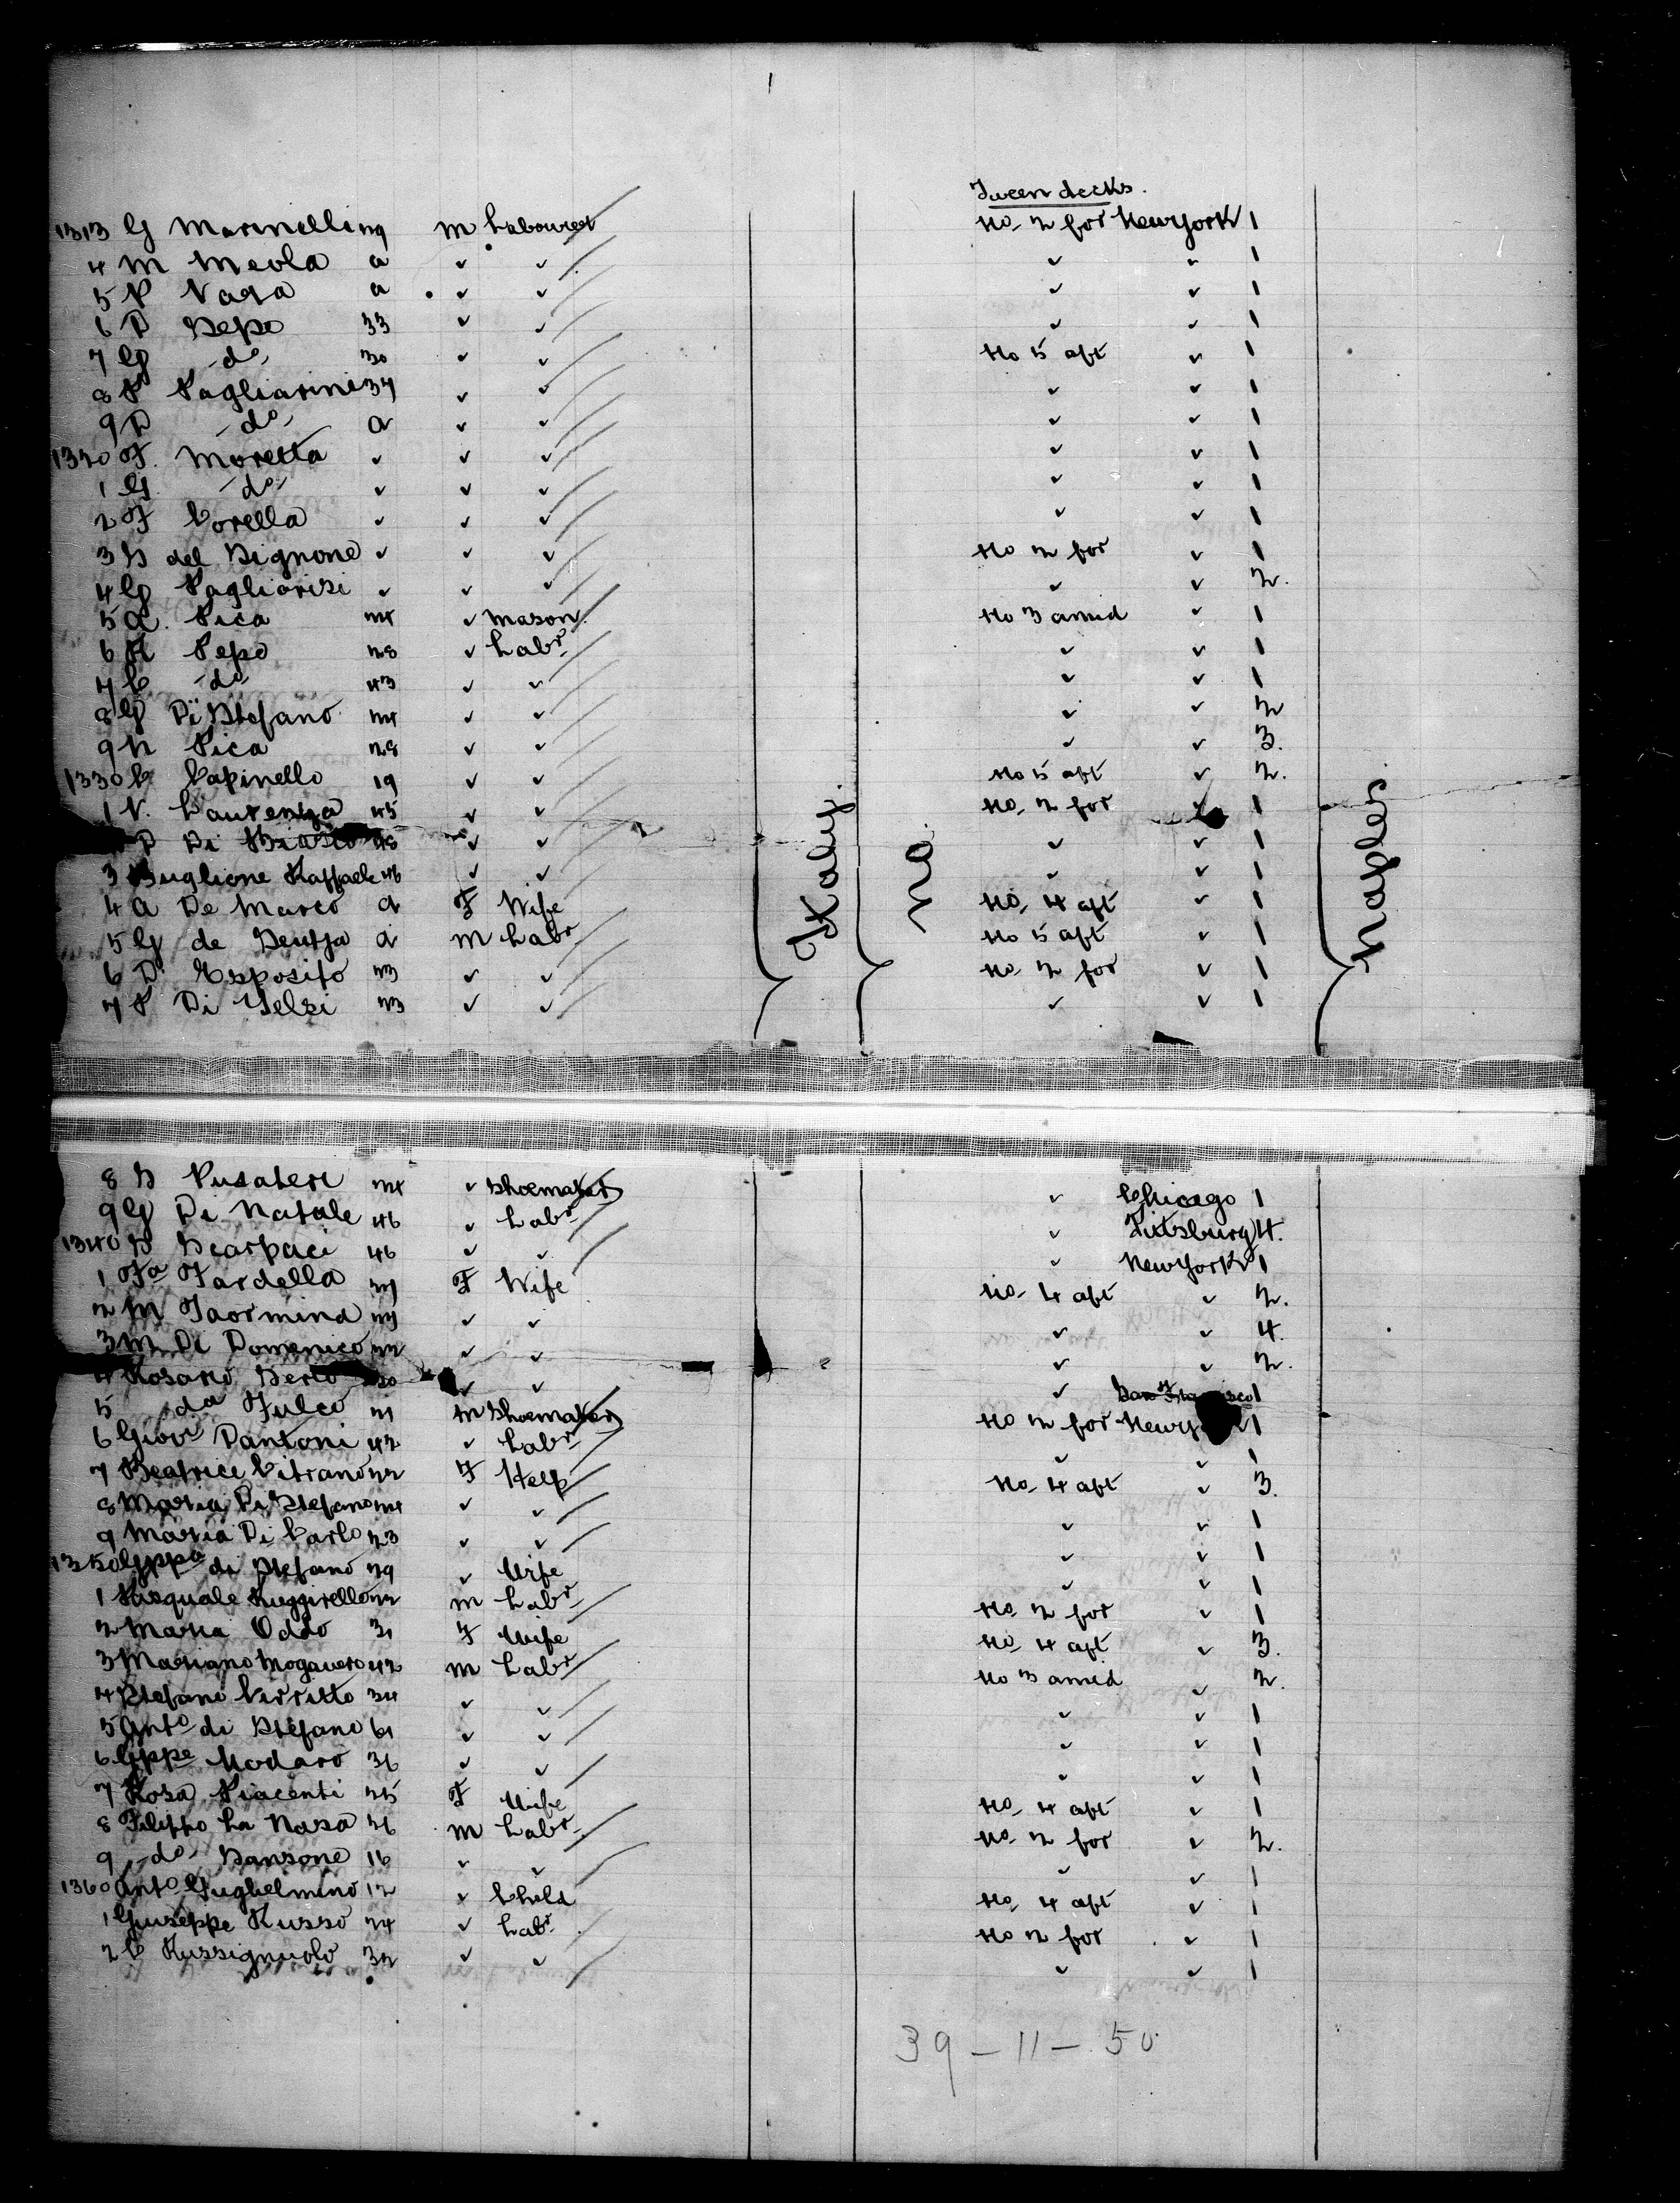 Tween decks.
1313 G Marinelli 29 M Labourer No. 2 for New York 1
4 M Meola a ✓ ✓ ✓ ✓ 1
5 P Vara a ✓ ✓ ✓ ✓ 1
6 D Sepo 33 ✓ ✓ ✓ ✓ 1
7 G do 30 ✓ ✓ No 5 aft ✓ 1
8 P Pagliarini 37 ✓ ✓ ✓ ✓ 1
9 D do a ✓ ✓ ✓ ✓ 1
1320 F. Moretta ✓ ✓ ✓ ✓ ✓ 1
1 G do ✓ ✓ ✓ ✓ ✓ 1
2 F Corella ✓ ✓ ✓ ✓ ✓ 1
3 S del Signone ✓ ✓ ✓ No 2 for ✓ 1
4 G Pagliarisi ✓ ✓ ✓ ✓ ✓ 2.
5 A. Pica 24 ✓ Mason. No 3 amid ✓ 1
6 A Pepo 28 ✓ Labr ✓ ✓ 1
7 C do 43 ✓ ✓ ✓ ✓ 1
8 G Di Stefano 24 ✓ ✓ ✓ ✓ 2
9 N Pica 28 ✓ ✓ ✓ ✓ 3.
1330 C Capinello 19 ✓ ✓ No 5 aft ✓ 2.
1 V. Laurenza 45 ✓ ✓ No. 2 for ✓ 1
D Di ✓ ✓ ✓ ✓ 1
3 Buglione Raffaele 46 ✓ ✓ ✓ ✓ 1
4 A De Marco a F Wife No. 4 aft ✓ 1
5 G de a M Labr No 5 aft ✓ 1
6 D. Esposito 23 ✓ ✓ No. 2 for ✓ 1
7 P Di Yelsi 23 ✓ ✓ ✓ ✓ 1
Italy.
no.
Naples.
8 S Pusateri 24 ✓ Shoemaker ✓ Chicago 1
9 G Di Natale 46 ✓ Labr ✓ Pittsburg 4.
1340 S Scarpaci 46 ✓ ✓ ✓ New York 1
1 Fa Fardella 27 F Wife No. 4 aft ✓ 2.
2 M Taormina 27 ✓ ✓ ✓ ✓ 4.
3 M Di Domenico 22 ✓ ✓ ✓ ✓ 2.
4 Rosario Serto ✓ ✓ ✓ San Francisco 1
5 do Fulco 21 M Shoemaker No 2 for New York 1
6 Giovi Dantoni 42 ✓ Labr ✓ ✓ 1
7 Beatrice Vitrano 22 F Help No. 4 aft ✓ 3.
8 Maria Di Stefano 24 ✓ ✓ ✓ ✓ 1
9 Maria Di Carlo 23 ✓ ✓ ✓ ✓ 1
1350 Gppa di Stefano 29 ✓ Wife ✓ ✓ 1
1 Pasquale Ruggirello 22 M Labr No. 2 for ✓ 1
2 Maria Oddo 31 F Wife No. 4 aft ✓ 3.
3 Mariano Mogavero 42 M Labr No 3 amid ✓ 2.
4 Stefano Virritto 34 ✓ ✓ ✓ ✓ 1
5 Anto di Stefano 61 ✓ ✓ ✓ ✓ 1
6 Gppe Modaro 36 ✓ ✓ ✓ ✓ 1
7 Rosa Piacenti 25 F Wife No. 4 aft ✓ 1
8 Filippo La Nasa 26 M Labr. No. 2 for ✓ 2.
9 do Sansone 16 ✓ ✓ ✓ ✓ 1
1360 Anto Guglielmino 12 ✓ Child No. 4 aft ✓ 1
1 Giuseppe Russo 24 ✓ Labr. No 2 for ✓ 1
2 C Russignuolo 32 ✓ ✓ ✓ ✓ 1
39 - 11 - 50